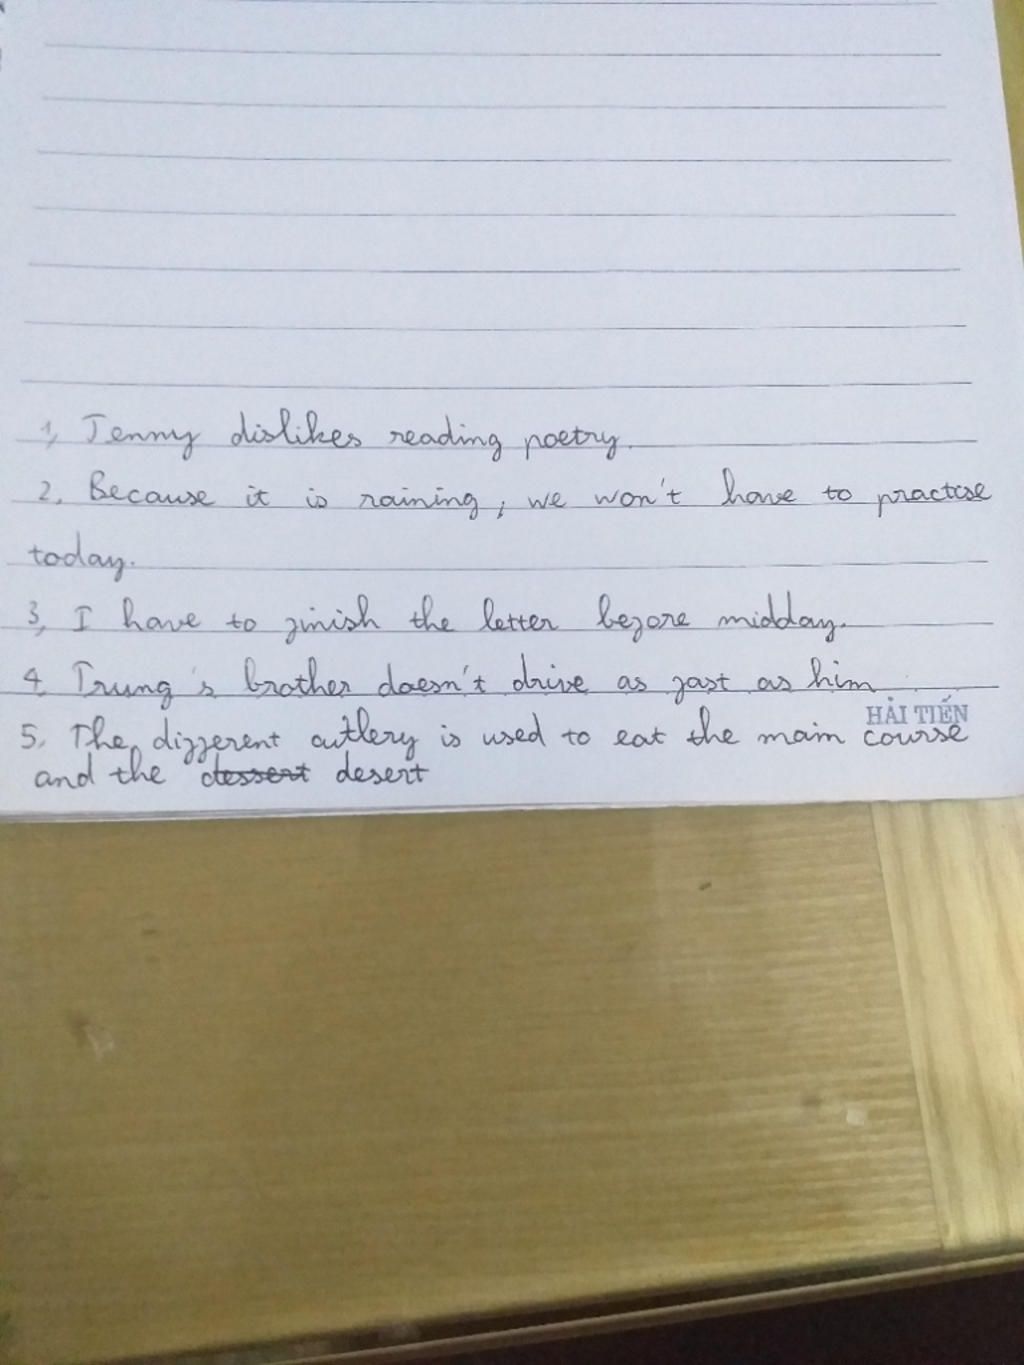 1, Jenny dislikes reading poetry.
2, Because it is raining, we won't have to practise
today.
3, I have to finish the letter before midday.
4, Trung's brother doesn't drive as fast as him
HẢI TIẾN
5, The different cutlery is used to eat the main course
and the dessert desert